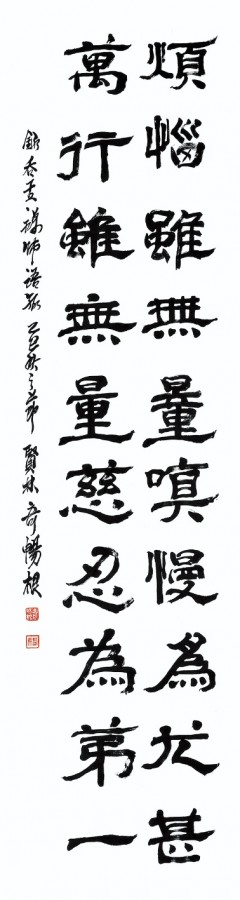 煩惱雖無量嗔慢為尤甚
萬行雖無量慈忍為第一
禪師語 乙巳秋 賢林 暢根